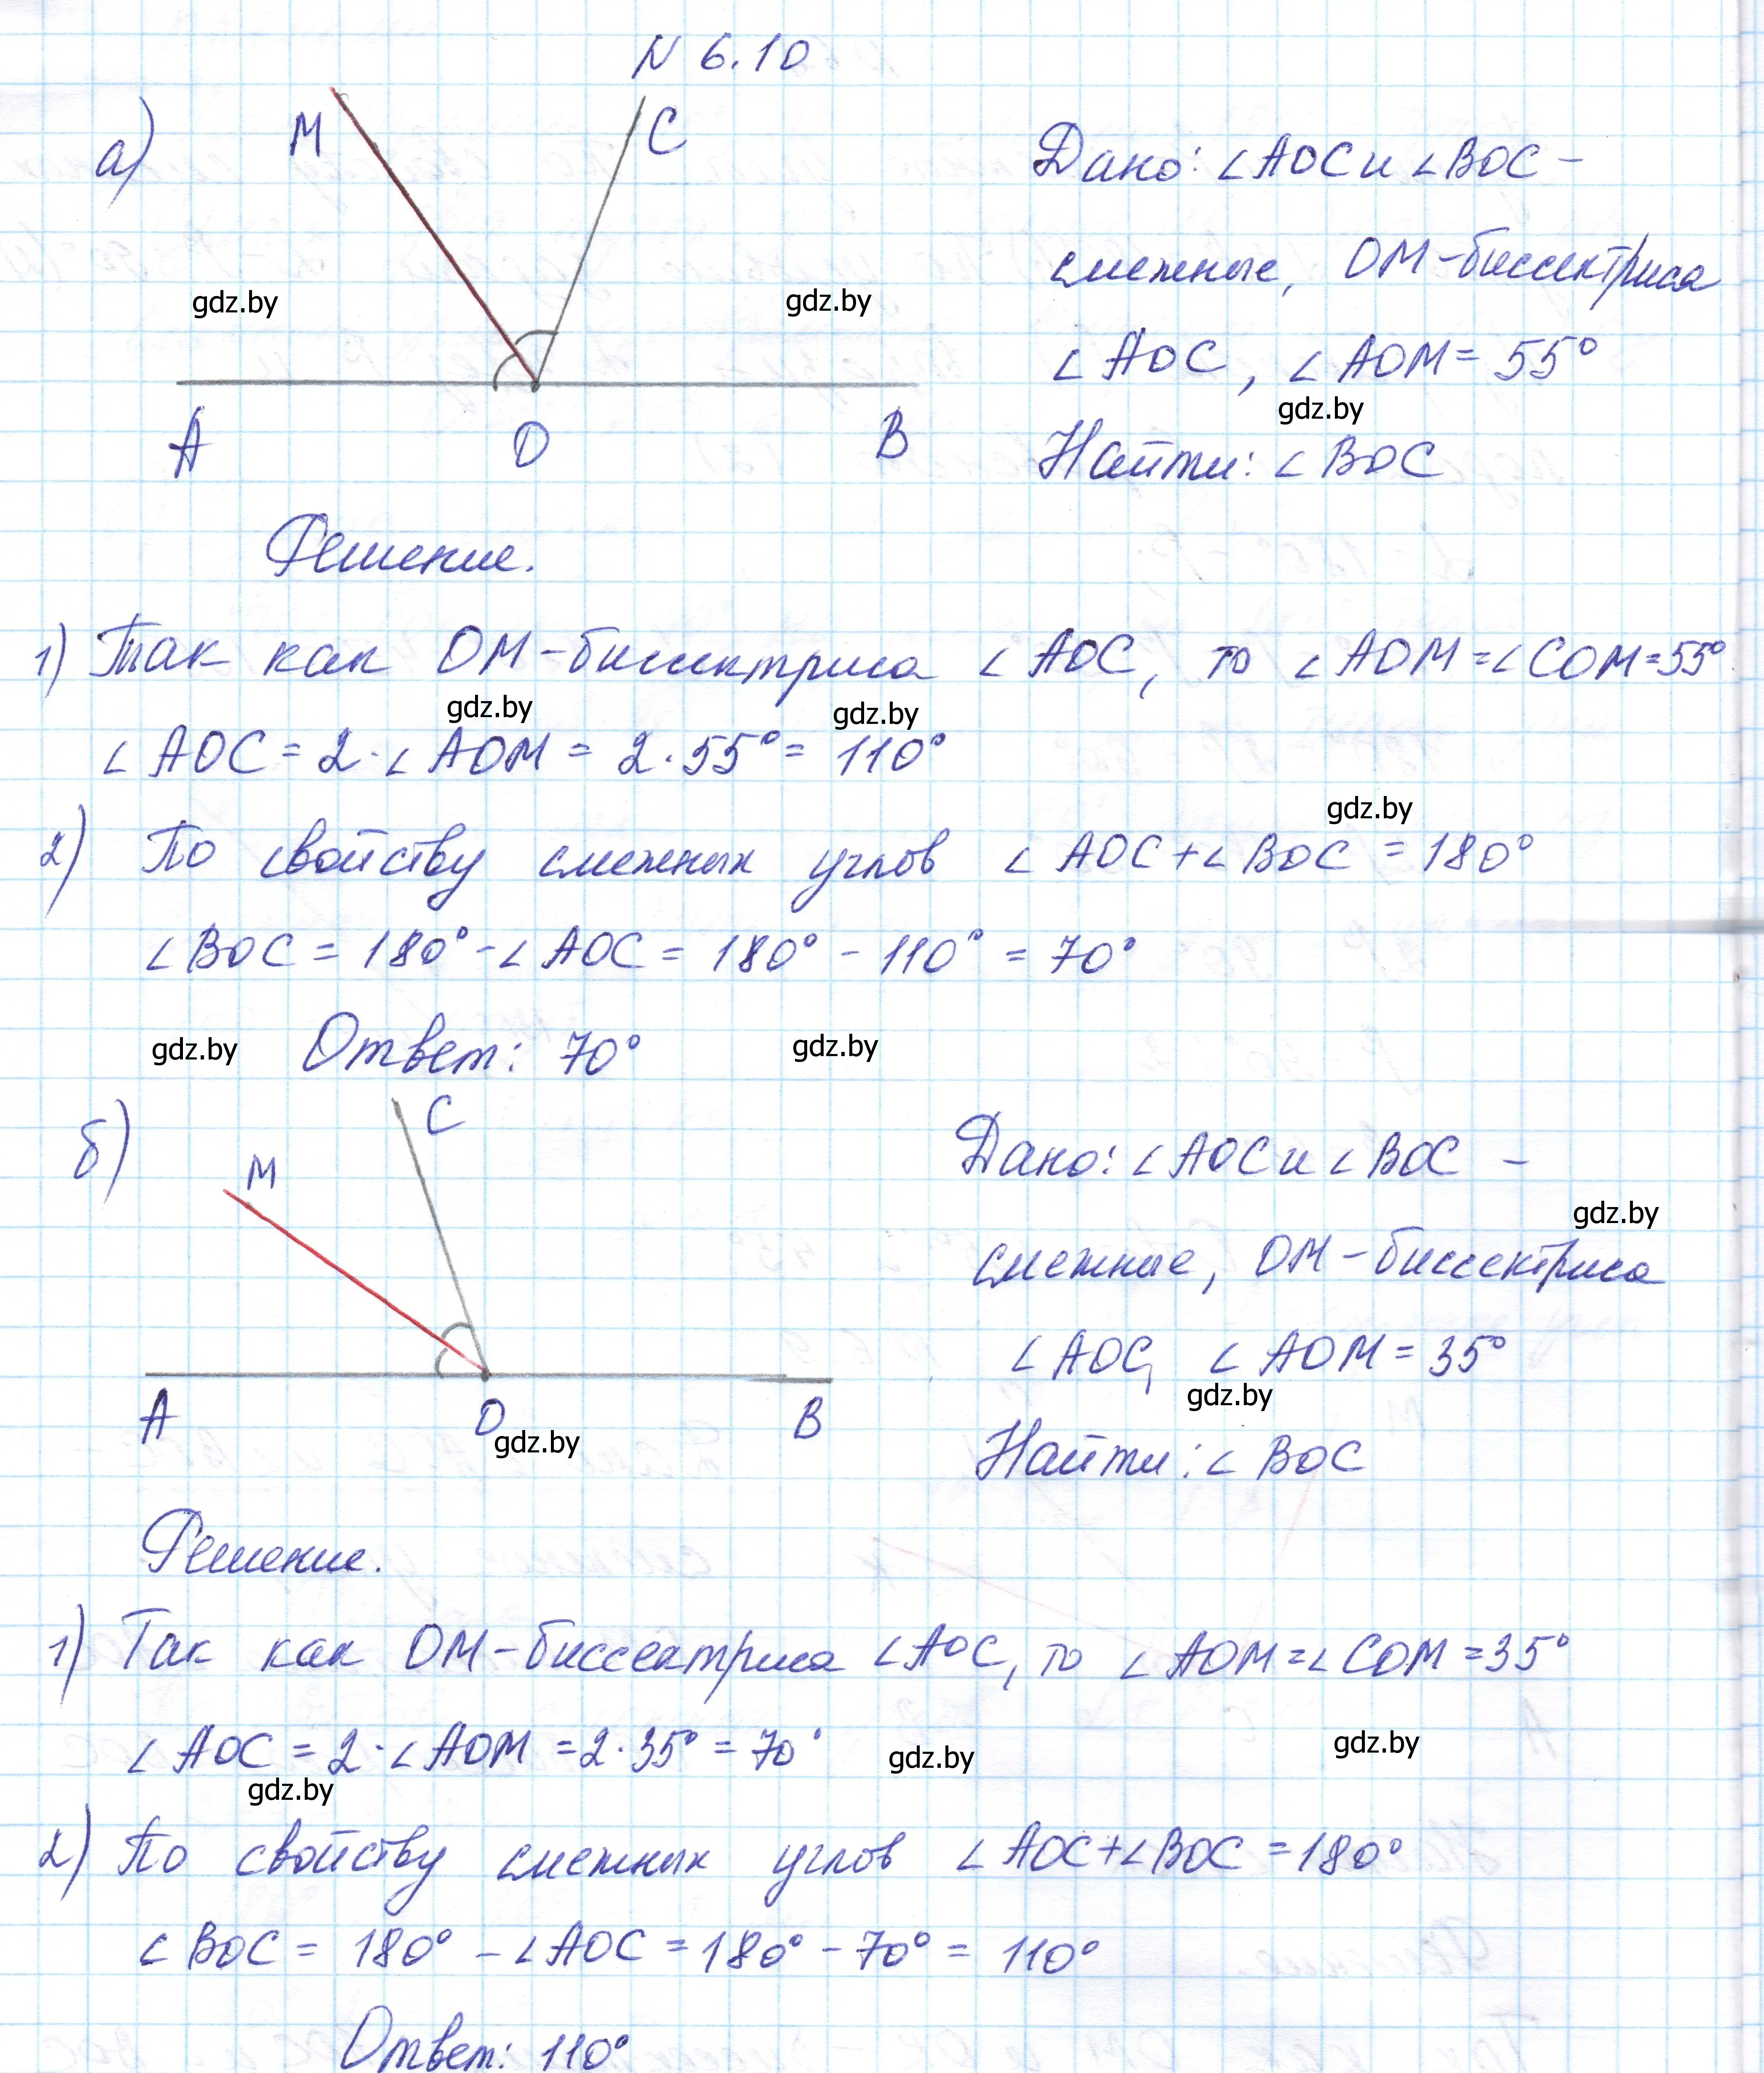 N 6.10
а)
M
C
Дано: ∠AOC и ∠BOC –
смежные, OM – биссектриса
gdz.by
gdz.by
∠AOC, ∠AOM = 55°
gdz.by
A
O
B
Найти: ∠BOC
Решение.
1) Так как OM – биссектриса ∠AOC, то ∠AOM = ∠COM = 55°
gdz.by
gdz.by
∠AOC = 2 · ∠AOM = 2 · 55° = 110°
gdz.by
2) По свойству смежных углов ∠AOC + ∠BOC = 180°
∠BOC = 180° – ∠AOC = 180° – 110° = 70°
gdz.by
Ответ: 70°
gdz.by
б)
M
C
Дано: ∠AOC и ∠BOC –
gdz.by
смежные, OM – биссектриса
∠AOC, ∠AOM = 35°
gdz.by
A
O
B
gdz.by
Найти: ∠BOC
Решение.
1) Так как OM – биссектриса ∠AOC, то ∠AOM = ∠COM = 35°
∠AOC = 2 · ∠AOM = 2 · 35° = 70°
gdz.by
gdz.by
gdz.by
2) По свойству смежных углов ∠AOC + ∠BOC = 180°
∠BOC = 180° – ∠AOC = 180° – 70° = 110°
Ответ: 110°